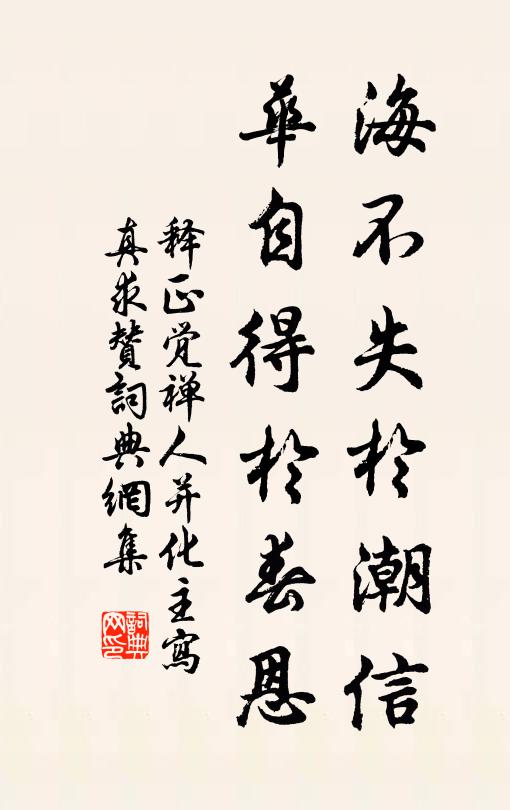 海不失於潮信
華自得於春恩
释正觉禅人并化主寫
真求贊詞典網集
詞典
网印